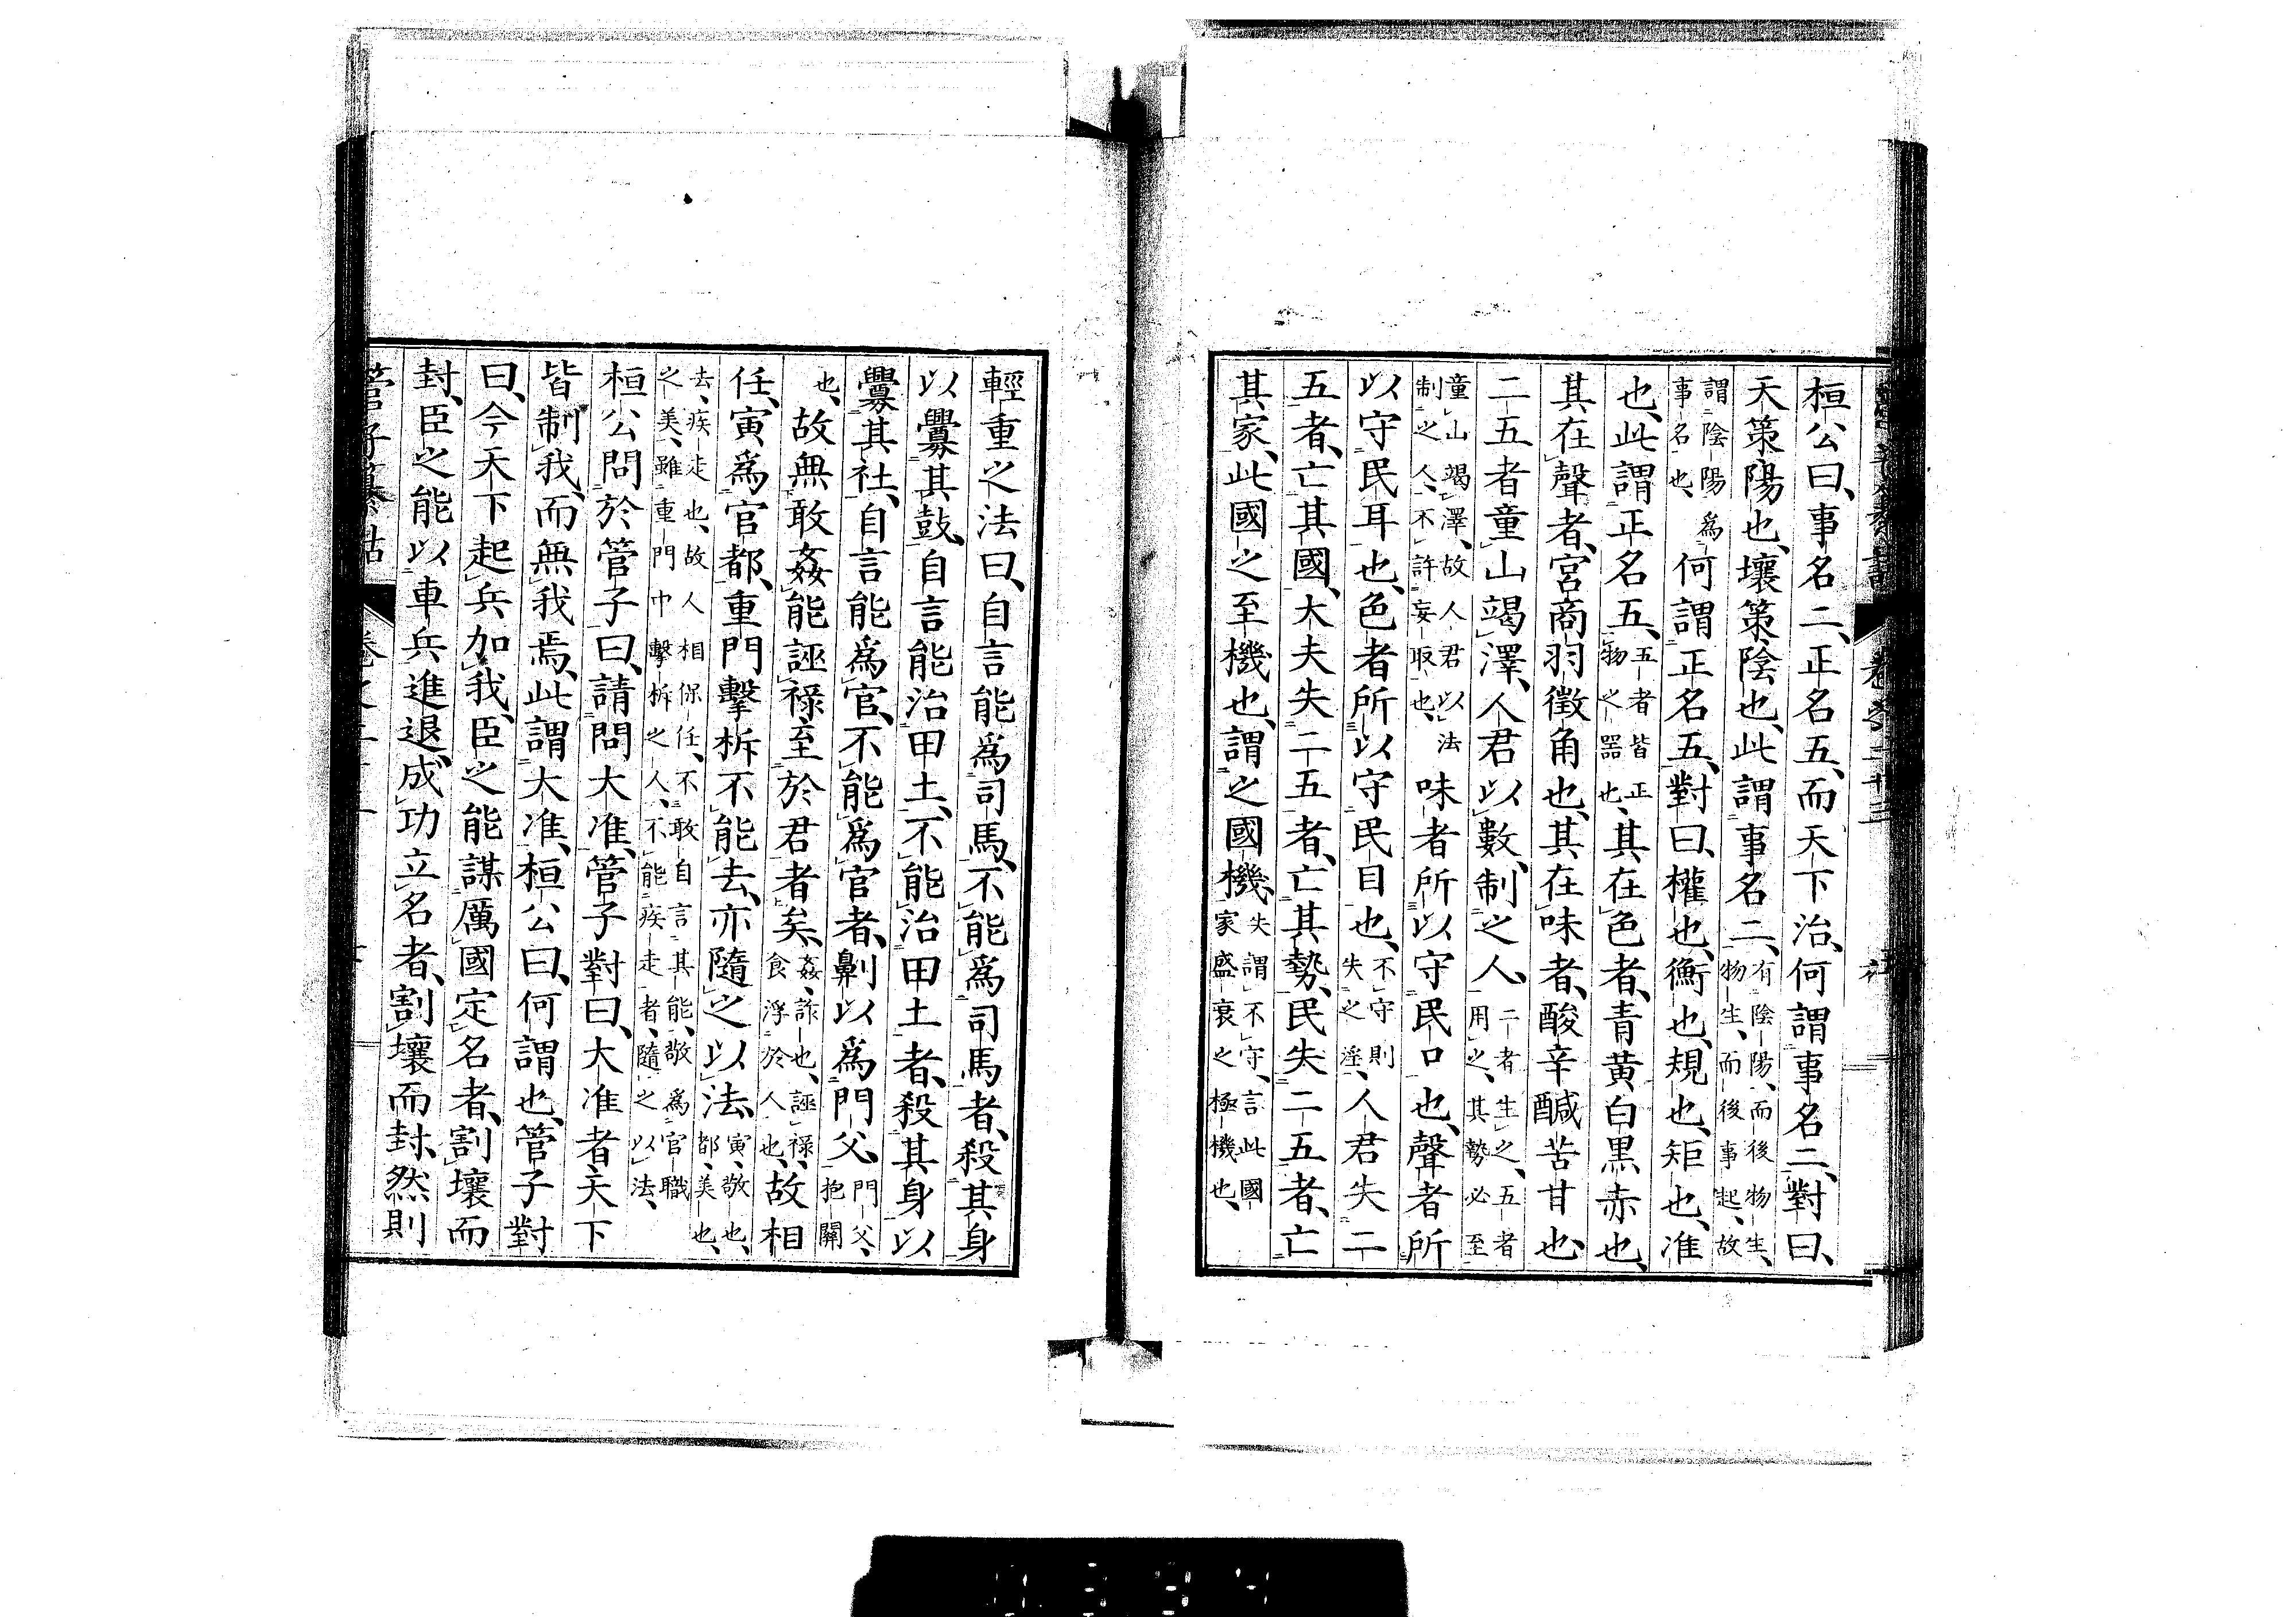 桓公曰、事名二、正名五、而天下治、何謂事名二、對曰、
天策陽也、壤策陰也、此謂事名二、有陰陽、而後物生、物生、而後事起、故
謂陰陽爲事名也、何謂正名五、對曰、權也、衡也、規也、矩也、准
也、此謂正名五、五者皆正物之器也、其在色者、青黄白黒赤也、
其在聲者、宮商羽徵角也、其在味者、酸辛鹹苦甘也、
二五者童山竭澤、人君以數、制之人、二者生之、五者用之、其勢必至
童山竭澤、故人君以法制之人、不許妄取也、味者所以守民口也、聲者所
以守民耳也、色者所以守民目也、不守則失之淫、人君失二
五者、亡其國、大夫失二五者、亡其勢、民失二五者、亡
其家、此國之至機也、謂之國機、失謂不守、言此國家盛衰之極機也、
輕重之法曰、自言能爲司馬、不能爲司馬者、殺其身
以釁其鼓、自言能治田土、不能治田土者、殺其身以
釁其社、自言能爲官、不能爲官者、劓以爲門父、門父、抱關
也、故無敢姦能誣祿至於君者矣、姦、詐也、誣祿、食浮於人也、故相
任、寅爲官都、重門擊柝不能去、亦隨之以法、寅、敬也、都、美也、
去、疾走也、故人相保任、不敢自言其能、敬爲官職之美、雖重門中擊柝之人、不能疾走者、隨之以法、
桓公問於管子曰、請問大准、管子對曰、大准者天下
皆制我、而無我焉、此謂大准、桓公曰、何謂也、管子對
曰、今天下起兵加我、臣之能謀厲國定名者、割壤而
封、臣之能以車兵進退、成功立名者、割壤而封、然則
管子纂詁